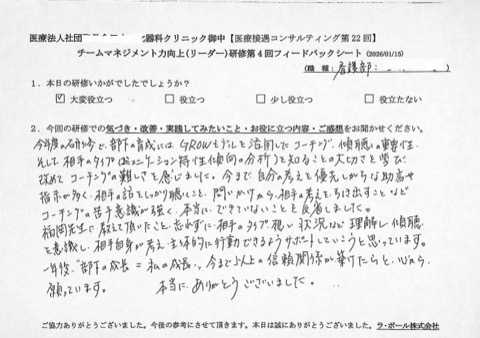 医療法人社団 器科クリニック御中【医療接遇コンサルティング第22回】
チームマネジメント力向上(リーダー)研修第4回フィードバックシート (2026/01/15)
(職種:看護部: )
1.本日の研修いかがでしたでしょうか?
☑ 大変役立つ □ 役立つ □ 少し役立つ □ 役立たない
2.今回の研修での気づき・改善・実践してみたいこと・お役に立つ内容・ご感想をお聞かせください。
今年度の研修で、部下の育成にはGROWモデルを活用したコーチング、傾聴の重要性、
そして相手のタイプ(コミュニケーション特性傾向の分析)を知ることの大切さを学び
改めてコーチングの難しさを感じました。今まで自分の考えを優先しがちな助言や
指示が多く、相手の話をしっかり聴くこと、問いかけから、相手の考えを引き出すことなど
コーチングの苦手意識が強く、本当にできていないことを反省しました。
福岡先生に教えて頂いたこと、忘れずに、相手のタイプ 状況など理解し、傾聴
を意識し、相手自身が考え、主体的に行動できるようサポートしていこうと思っています。
一年後、"部下の成長=私の成長"、今まで以上の信頼関係が築けたらと、心から
願っています。 本当にありがとうございました。
ご協力ありがとうございました。今後の参考にさせて頂きます。本日は誠にありがとうございました。 ラ・ポール株式会社